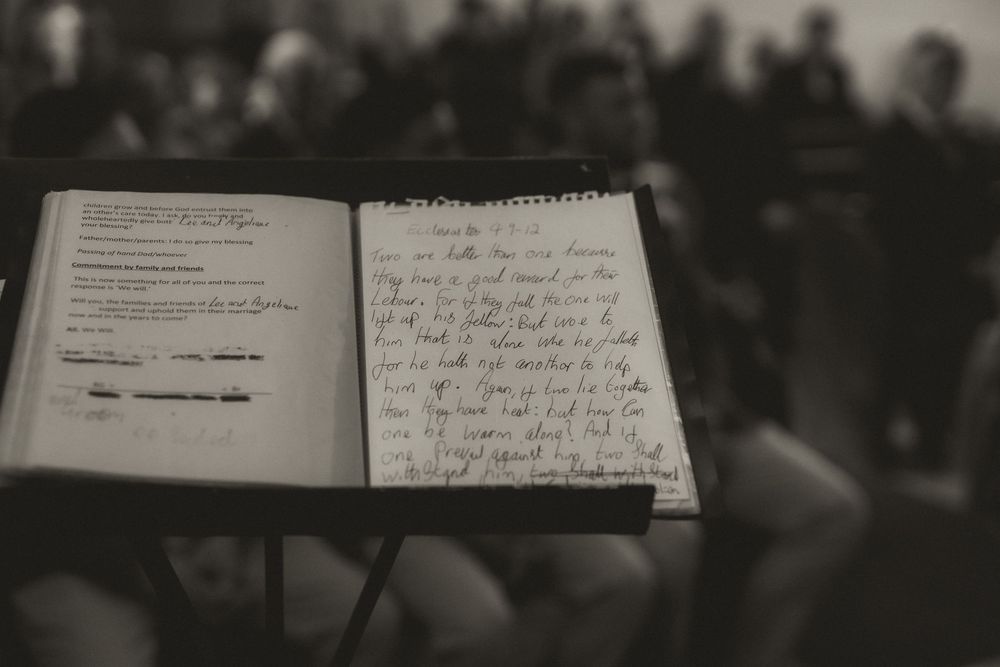 children grow and before God entrust them into
an other's care today. I ask, do you freely and
wholeheartedly give both Lee and Angeliane
your blessing?
Father/mother/parents: I do so give my blessing
Passing of hand Dad/whoever
Commitment by family and friends
This is now something for all of you and the correct
response is 'We will.'
Will you, the families and friends of Lee and Angeliane
support and uphold them in their marriage
now and in the years to come?
All. We Will.
Ecclesiastes 4 9-12
Two are better than one because
they have a good reward for their
Labour. For if they fall the one will
lift up his fellow: But woe to
him that is alone whe he falleth
for he hath not another to help
him up. Again, if two lie together
then they have heat: but how Can
one be warm alone? And if
one Prevail against him, two Shall
withstand him, two Shall withstand